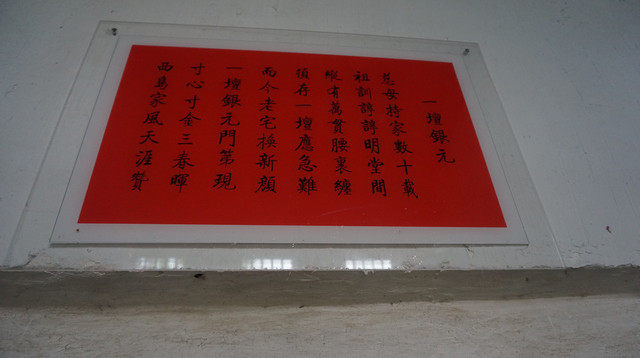 一壇銀元
慈母持家數十載
祖訓諄諄明堂間
縱有萬貫腰裏纏
須存一壇應急難
而今老宅換新顏
一壇銀元門第現
寸心寸金三春暉
西島家風天涯贊